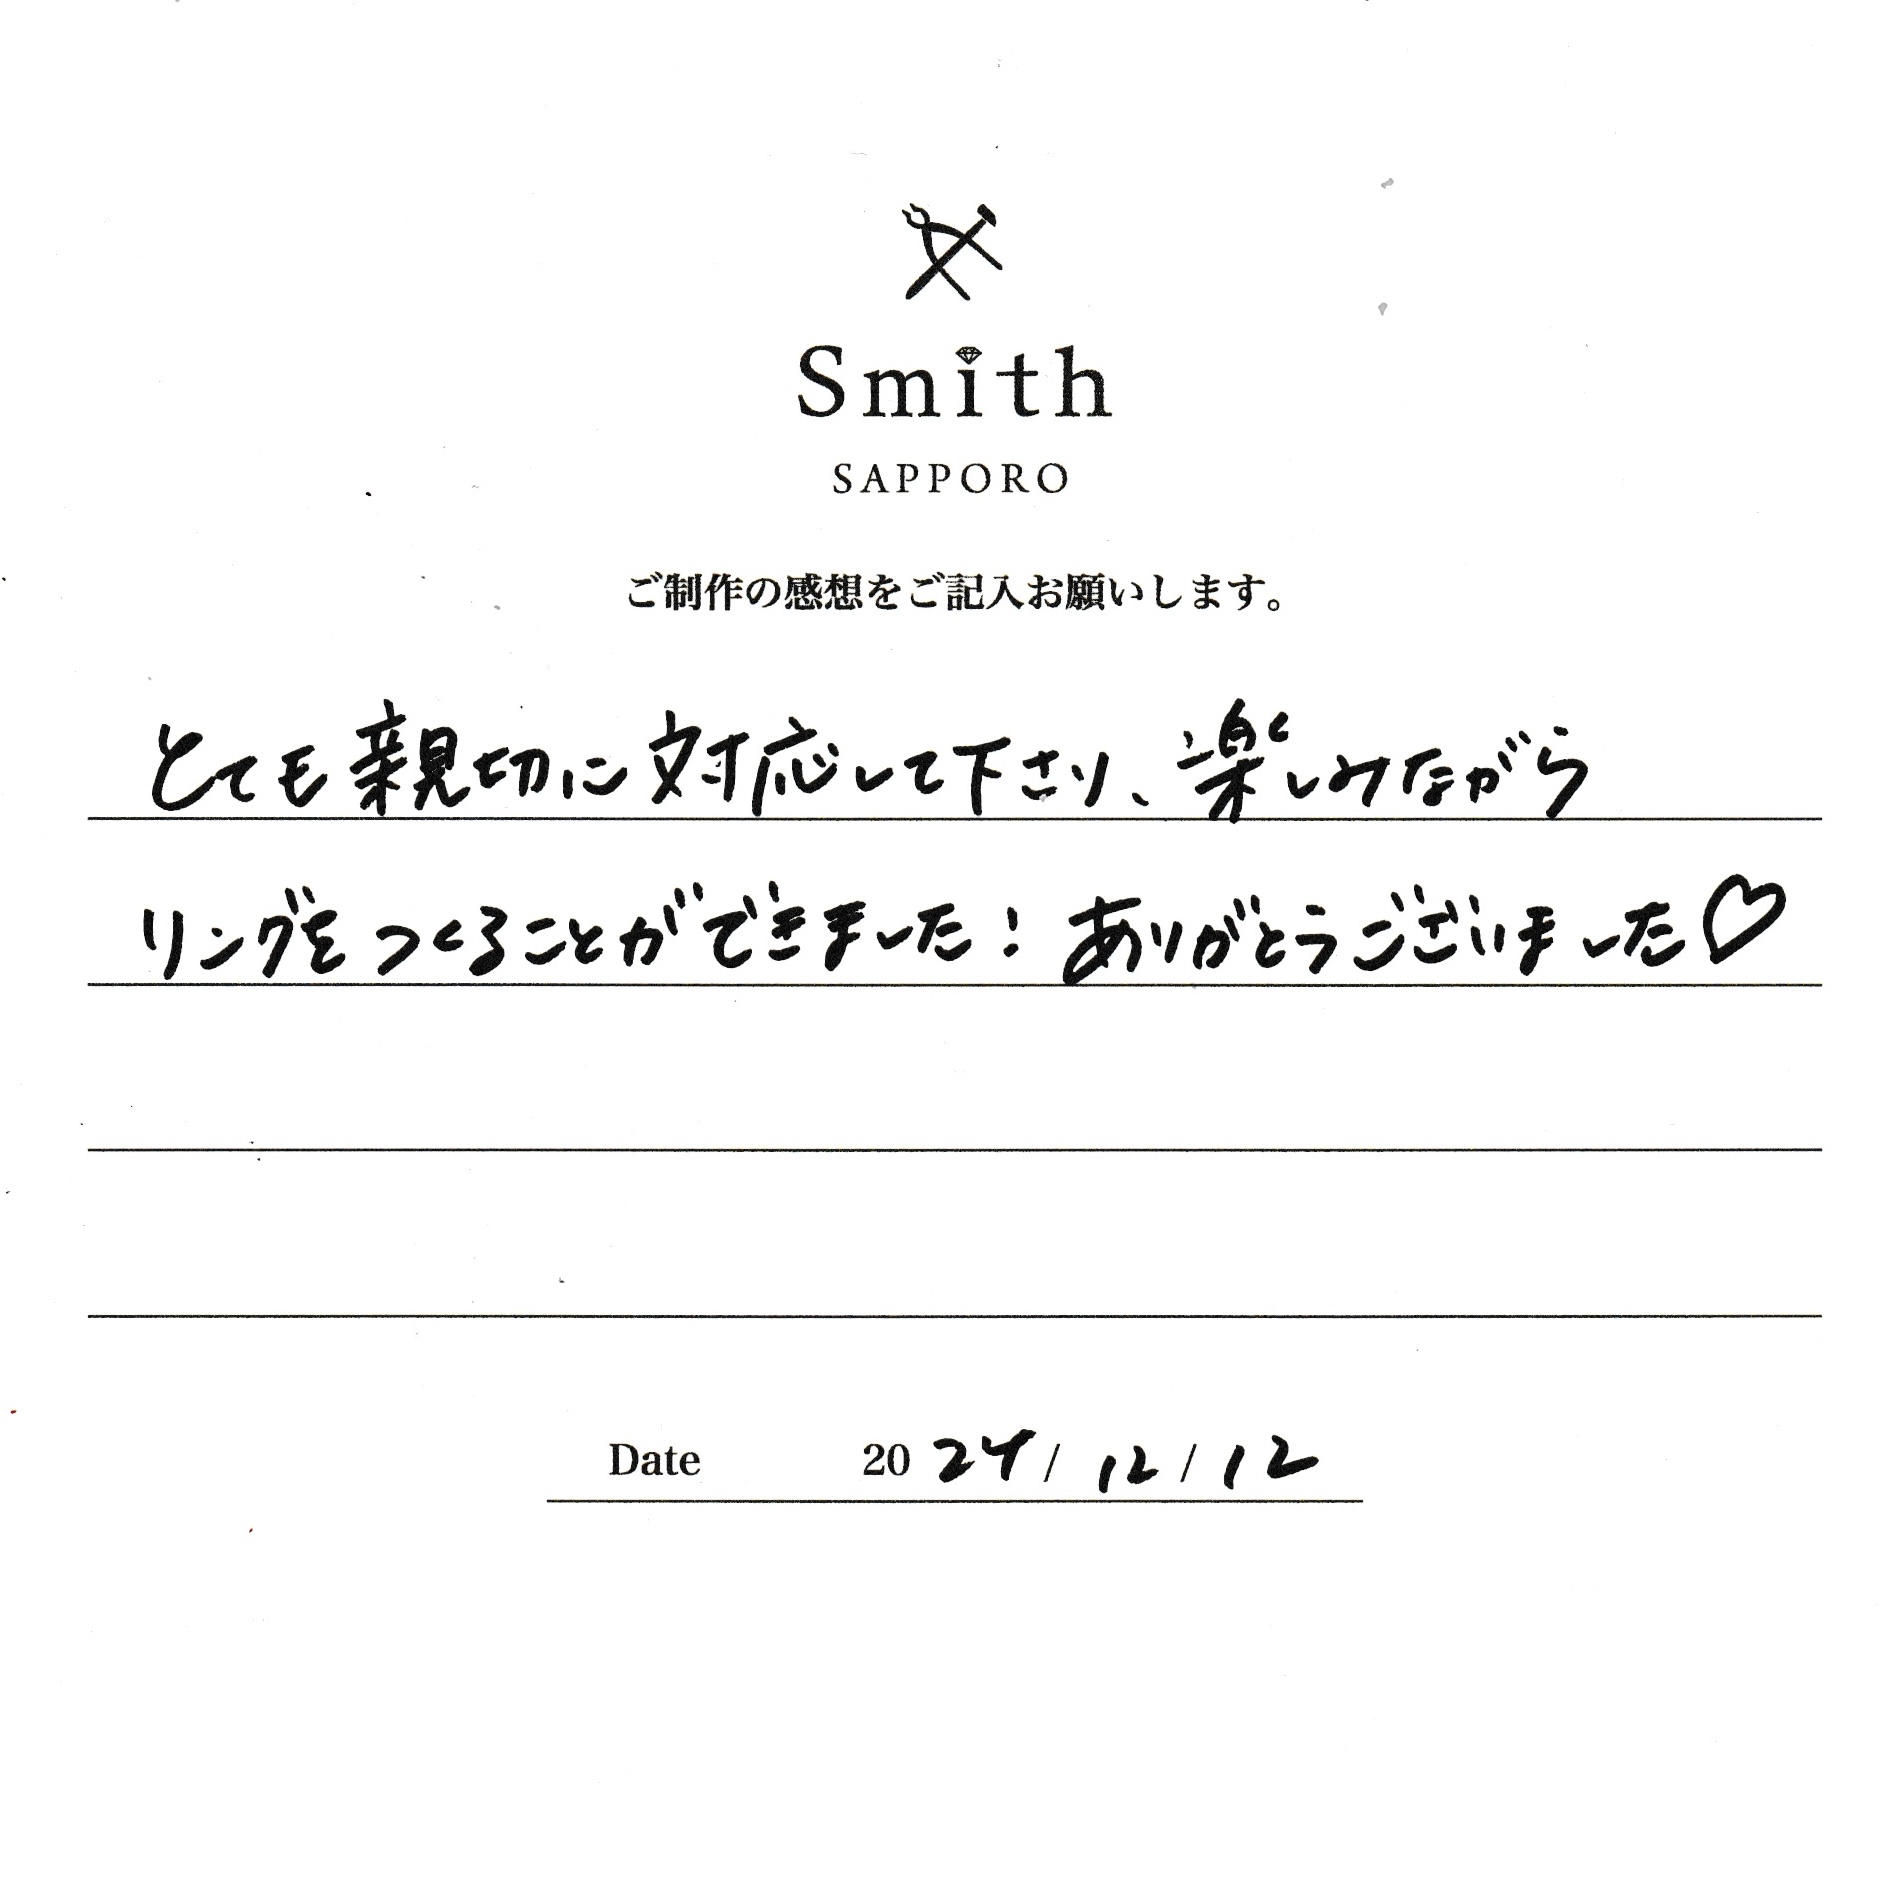 Smith
SAPPORO
ご制作の感想をご記入お願いします。
とても親切に対応して下さり、楽しみながら
リングをつくることができました！ありがとうございました♡
Date 2024/12/12